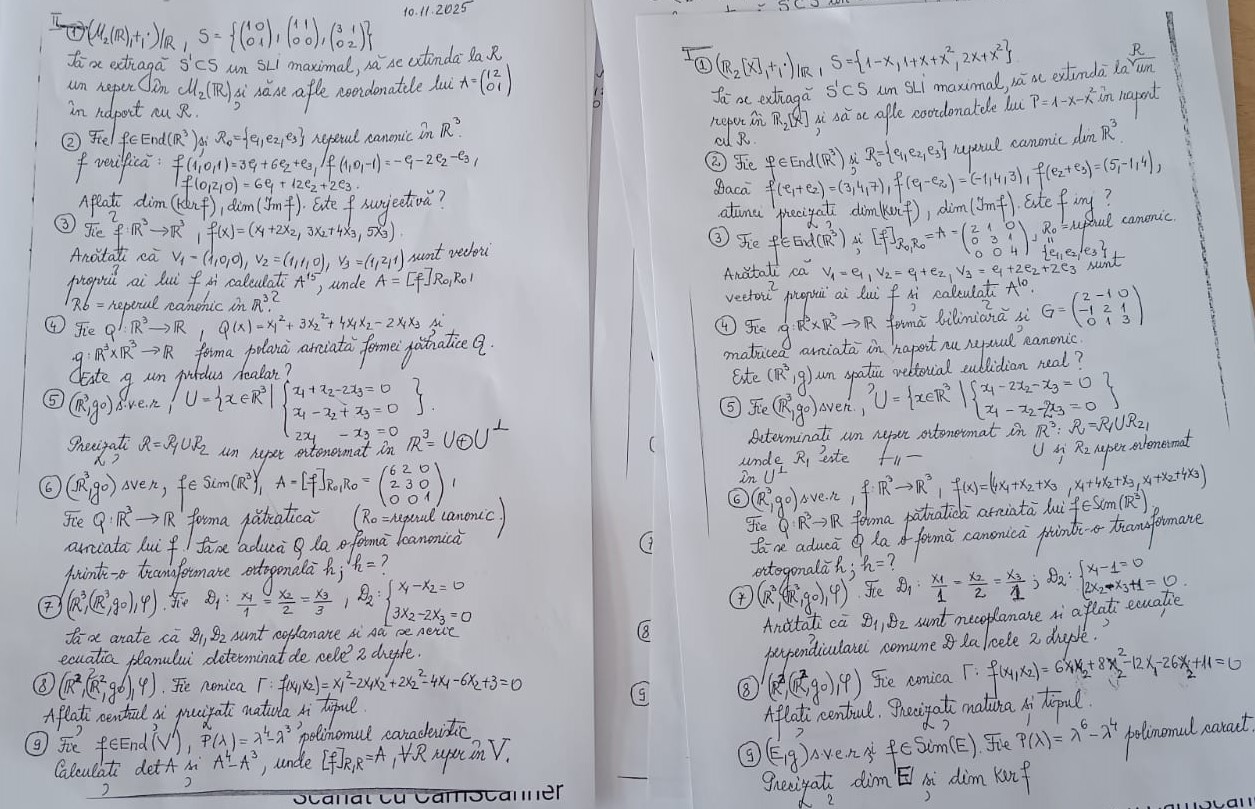 10.11.2025
II ① (M₂(ℝ),+,·)|ℝ , S = {(1 0 / 0 1), (1 1 / 0 0), (3 1 / 0 2)}
Să se extragă S'⊂S un SLI maximal, să se extindă la R
un reper în M₂(ℝ) și să se afle coordonatele lui A = (1 2 / 0 1)
în raport cu R.
② Fie f∈End(ℝ³) și R₀={e₁,e₂,e₃} reperul canonic în ℝ³.
f verifică : f(1,0,1)=3e₁+6e₂+e₃, f(1,0,-1)=-e₁-2e₂-e₃,
f(0,2,0) = 6e₁+12e₂+2e₃.
Aflați dim(Ker f), dim(Im f). Este f surjectivă?
③ Fie f:ℝ³→ℝ³, f(x) = (x₁+2x₂, 3x₂+4x₃, 5x₃).
Arătați că v₁ = (1,0,0), v₂ = (1,1,0), v₃ = (1,2,1) sunt vectori
proprii ai lui f și calculați A¹⁵, unde A = [f]R₀,R₀,
R₀ = reperul canonic în ℝ³?
④ Fie Q:ℝ³→ℝ, Q(x)=x₁²+3x₂²+4x₁x₂-2x₁x₃ și
g:ℝ³×ℝ³→ℝ forma polară asociată formei pătratice Q.
Este g un produs scalar?
⑤ (ℝ³,g₀) s.v.e.r, U = {x∈ℝ³ | { x₁+x₂-2x₃=0
x₁-x₂+x₃=0 }.
2x₁ -x₃=0
Precizați R=R₁∪R₂ un reper ortonormat în ℝ³=U⊕U⊥
⑥ (ℝ³,g₀) sver, f∈Sim(ℝ³), A=[f]R₀,R₀ = (6 2 0 / 2 3 0 / 0 0 1),
Fie Q:ℝ³→ℝ forma pătratică (R₀=reperul canonic)
asociată lui f. Să se aducă Q la o formă canonică
printr-o transformare ortogonală h; h=?
⑦ (ℝ³,(ℝ³,g₀),φ). Fie D₁: x₁/1 = x₂/2 = x₃/3, D₂: { x₁-x₂=0
3x₂-2x₃=0
Să se arate că D₁,D₂ sunt coplanare și să se scrie
ecuația planului determinat de cele 2 drepte.
⑧ (ℝ²,(ℝ²,g₀),φ). Fie conica Γ: f(x₁,x₂)=x₁²-2x₁x₂+2x₂²-4x₁-6x₂+3=0
Aflați centrul și precizați natura și tipul.
⑨ Fie f∈End(V), P(λ)=λ⁴-λ³ polinomul caracteristic
Calculați detA și A⁴-A³, unde [f]R,R=A, ∀R reper în V.
Scanat cu CamScanner
I ① (ℝ₂[X],+,·)|ℝ, S={1-x, 1+x+x², 2x+x²}
Să se extragă S'⊂S un SLI maximal, să se extindă la R un
reper în ℝ₂[X] și să se afle coordonatele lui P=1-x-x² în raport
cu R.
② Fie f∈End(ℝ³) și R₀={e₁,e₂,e₃} reperul canonic din ℝ³.
Dacă f(e₁+e₂)=(3,4,7), f(e₁-e₂)=(-1,4,3), f(e₂+e₃)=(5,-1,4),
atunci precizați dim(Ker f), dim(Im f). Este f inj?
③ Fie f∈End(ℝ³) și [f]R₀,R₀=A=(2 1 0 / 0 3 1 / 0 0 4), R₀=reperul canonic.
{e₁,e₂,e₃}
Arătați că v₁=e₁, v₂=e₁+e₂, v₃=e₁+2e₂+2e₃ sunt
vectori proprii ai lui f și calculați A¹⁰.
④ Fie g:ℝ³×ℝ³→ℝ formă biliniară și G=(2 -1 0 / -1 2 1 / 0 1 3)
matricea asociată în raport cu reperul canonic.
Este (ℝ³,g) un spațiu vectorial euclidian real?
⑤ Fie (ℝ³,g₀) sver, U={x∈ℝ³ | { x₁-2x₂-x₃=0
x₁-x₂-2x₃=0 }
Determinați un reper ortonormat în ℝ³: R=R₁∪R₂,
unde R₁ este —ıı— U și R₂ reper ortonormat
în U⊥
⑥ (ℝ³,g₀) s.v.e.r, f:ℝ³→ℝ³, f(x)=(4x₁+x₂+x₃, x₁+4x₂+x₃, x₁+x₂+4x₃)
Fie Q:ℝ³→ℝ forma pătratică asociată lui f∈Sim(ℝ³)
Să se aducă Q la o formă canonică printr-o transformare
ortogonală h; h=?
⑦ (ℝ³,(ℝ³,g₀),φ). Fie D₁: x₁/1 = x₂/2 = x₃/1; D₂: { x₁-1=0
2x₂-x₃+1=0.
Arătați că D₁,D₂ sunt necoplanare și aflați ecuație
perpendicularei comune D la cele 2 drepte.
⑧ (ℝ²,(ℝ²,g₀),φ) Fie conica Γ: f(x₁,x₂)=6x₁x₂+8x₂²-12x₁-26x₂+11=0
Aflați centrul. Precizați natura și tipul.
⑨ (E,g) s.v.e.r și f∈Sim(E). Fie P(λ)=λ⁶-λ⁴ polinomul caract.
Precizați dim E și dim Ker f